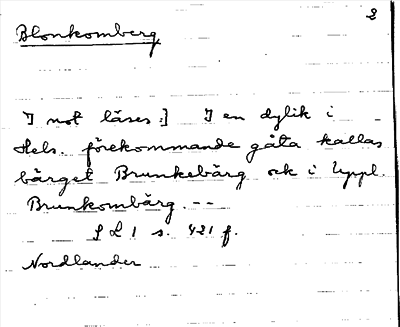 2
Blonkomberg
I not läses:] I en dylik i
Hels. förekommande gåta kallas
bärget Brunkebärg ock i Uppl.
Brunkombärg. --
S L 1 s. 421 f.
Nordlander